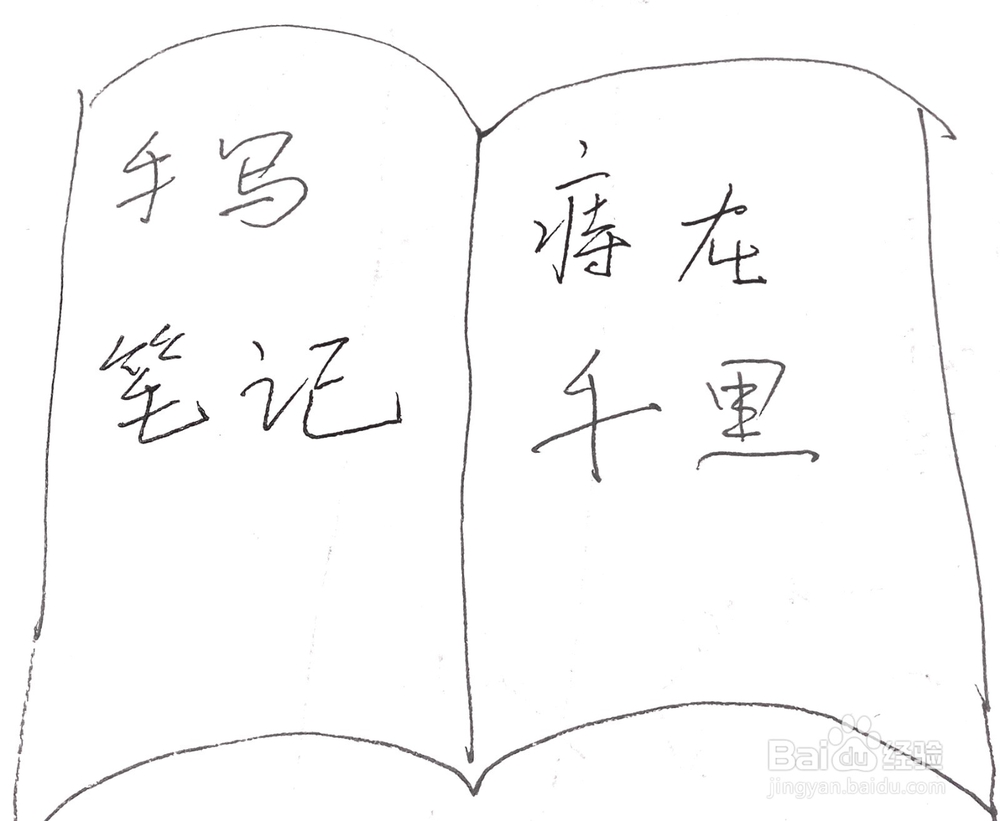 手写
笔记
痔在
千里
Baidu经验
jingyan.baidu.com